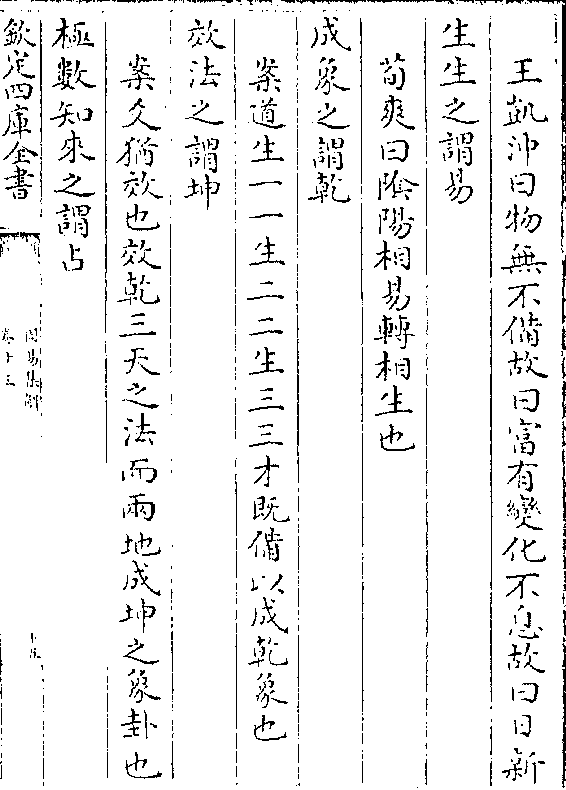 王凱沖曰物無不備故曰富有變化不息故曰日新
生生之謂易
荀爽曰陰陽相易轉相生也
成象之謂乾
案道生一一生二二生三三才既備以成乾象也
效法之謂坤
案爻猶效也效乾三天之法而兩地成坤之象卦也
極數知來之謂占
欽定四庫全書
周易集解
卷十三